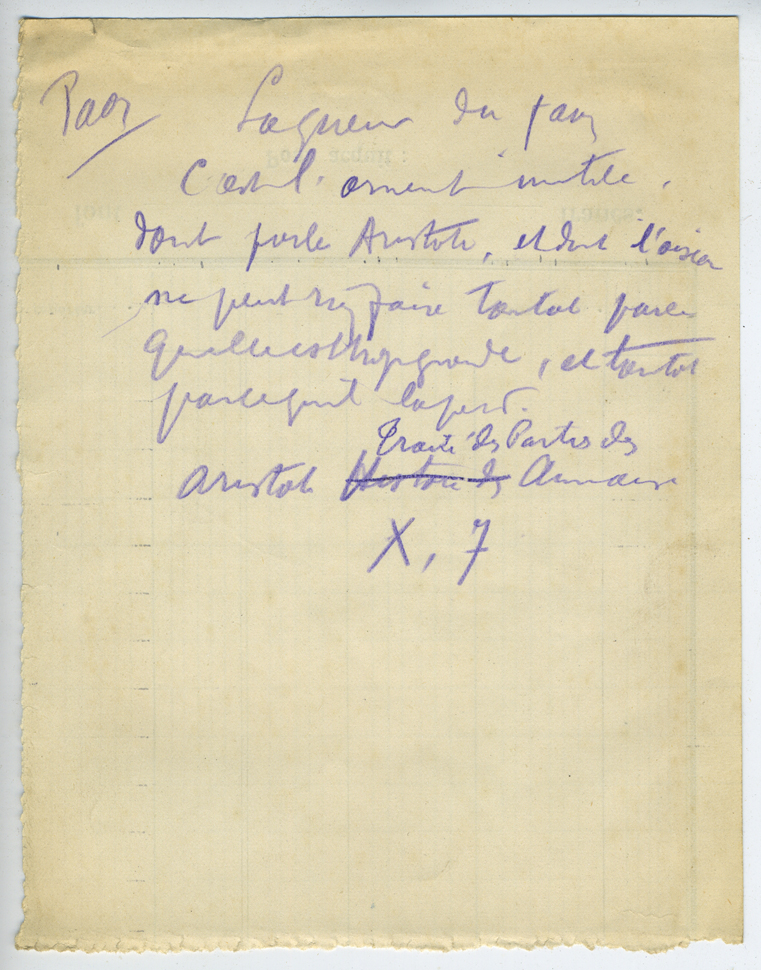 Paon La queue du paon
C'est l'ornement inutile,
dont parle Aristote, et dont l'oiseau
ne peut rien faire tantôt parce
qu'elle est trop grande, et tantôt
parce qu'il la perd.
Traité des Parties des
Aristote Histoire des Animaux
X, 7